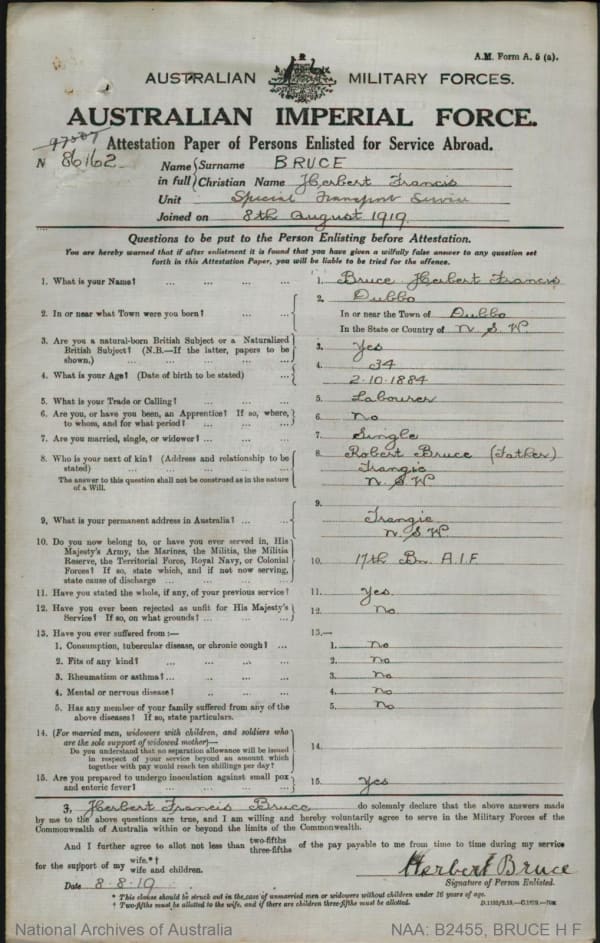 A.M. Form A. 5 (a).
AUSTRALIAN MILITARY FORCES.
AUSTRALIAN IMPERIAL FORCE.
97507 Attestation Paper of Persons Enlisted for Service Abroad.
N 86162 Name in full Surname BRUCE
Christian Name Herbert Francis
Unit Special Transport Service
Joined on 8th August 1919.
Questions to be put to the Person Enlisting before Attestation.
You are hereby warned that if after enlistment it is found that you have given a wilfully false answer to any question set
forth in this Attestation Paper, you will be liable to be tried for the offence.
1. What is your Name? ... ... ... 1. Bruce Herbert Francis
2. Dubbo
2. In or near what Town were you born? ... ... In or near the Town of Dubbo
In the State or Country of N. S. W
3. Are you a natural-born British Subject or a Naturalized
British Subject? (N.B.—If the latter, papers to be
shown.) ... ... ... ... 3. Yes
4. What is your Age? (Date of birth to be stated) ... 4. 34
2.10.1884
5. What is your Trade or Calling? ... ... ... 5. Labourer
6. Are you, or have you been, an Apprentice? If so, where,
to whom, and for what period? ... ... ... 6. No
7. Are you married, single, or widower? ... ... ... 7. Single
8. Who is your next of kin? (Address and relationship to be
stated) ... ... ... ... 8. Robert Bruce (Father)
Trangie
The answer to this question shall not be construed as in the nature
of a Will. N. S. W
9. What is your permanent address in Australia? ... ... 9. Trangie
N. S. W.
10. Do you now belong to, or have you ever served in, His
Majesty's Army, the Marines, the Militia, the Militia
Reserve, the Territorial Force, Royal Navy, or Colonial
Forces? If so, state which, and if not now serving,
state cause of discharge ... ... ... 10. 17th Bn. A.I.F
11. Have you stated the whole, if any, of your previous service? 11. Yes.
12. Have you ever been rejected as unfit for His Majesty's
Service? If so, on what grounds? ... ... ... 12. No.
13. Have you ever suffered from :— 13.—
1. Consumption, tubercular disease, or chronic cough? ... 1. No
2. Fits of any kind? ... ... ... 2. No
3. Rheumatism or asthma? ... ... ... 3. No
4. Mental or nervous disease? .. ... ... 4. No
5. Has any member of your family suffered from any of the
above diseases? If so, state particulars. 5. No
14. (For married men, widowers with children, and soldiers who
are the sole support of widowed mother)—
Do you understand that no separation allowance will be issued
in respect of your service beyond an amount which
together with pay would reach ten shillings per day? 14.
15. Are you prepared to undergo inoculation against small pox
and enteric fever? ... ... ... ... 15. Yes
I, Herbert Francis Bruce do solemnly declare that the above answers made
by me to the above questions are true, and I am willing and hereby voluntarily agree to serve in the Military Forces of the
Commonwealth of Australia within or beyond the limits of the Commonwealth.
And I further agree to allot not less than two-fifths three-fifths of the pay payable to me from time to time during my service
for the support of my wife.*† wife and children.
Herbert Bruce
Date 8.8.19 Signature of Person Enlisted.
* This clause should be struck out in the case of unmarried men or widowers without children under 16 years of age.
† Two-fifths must be allotted to the wife, and if there are children three-fifths must be allotted.
National Archives of Australia NAA: B2455, BRUCE H F